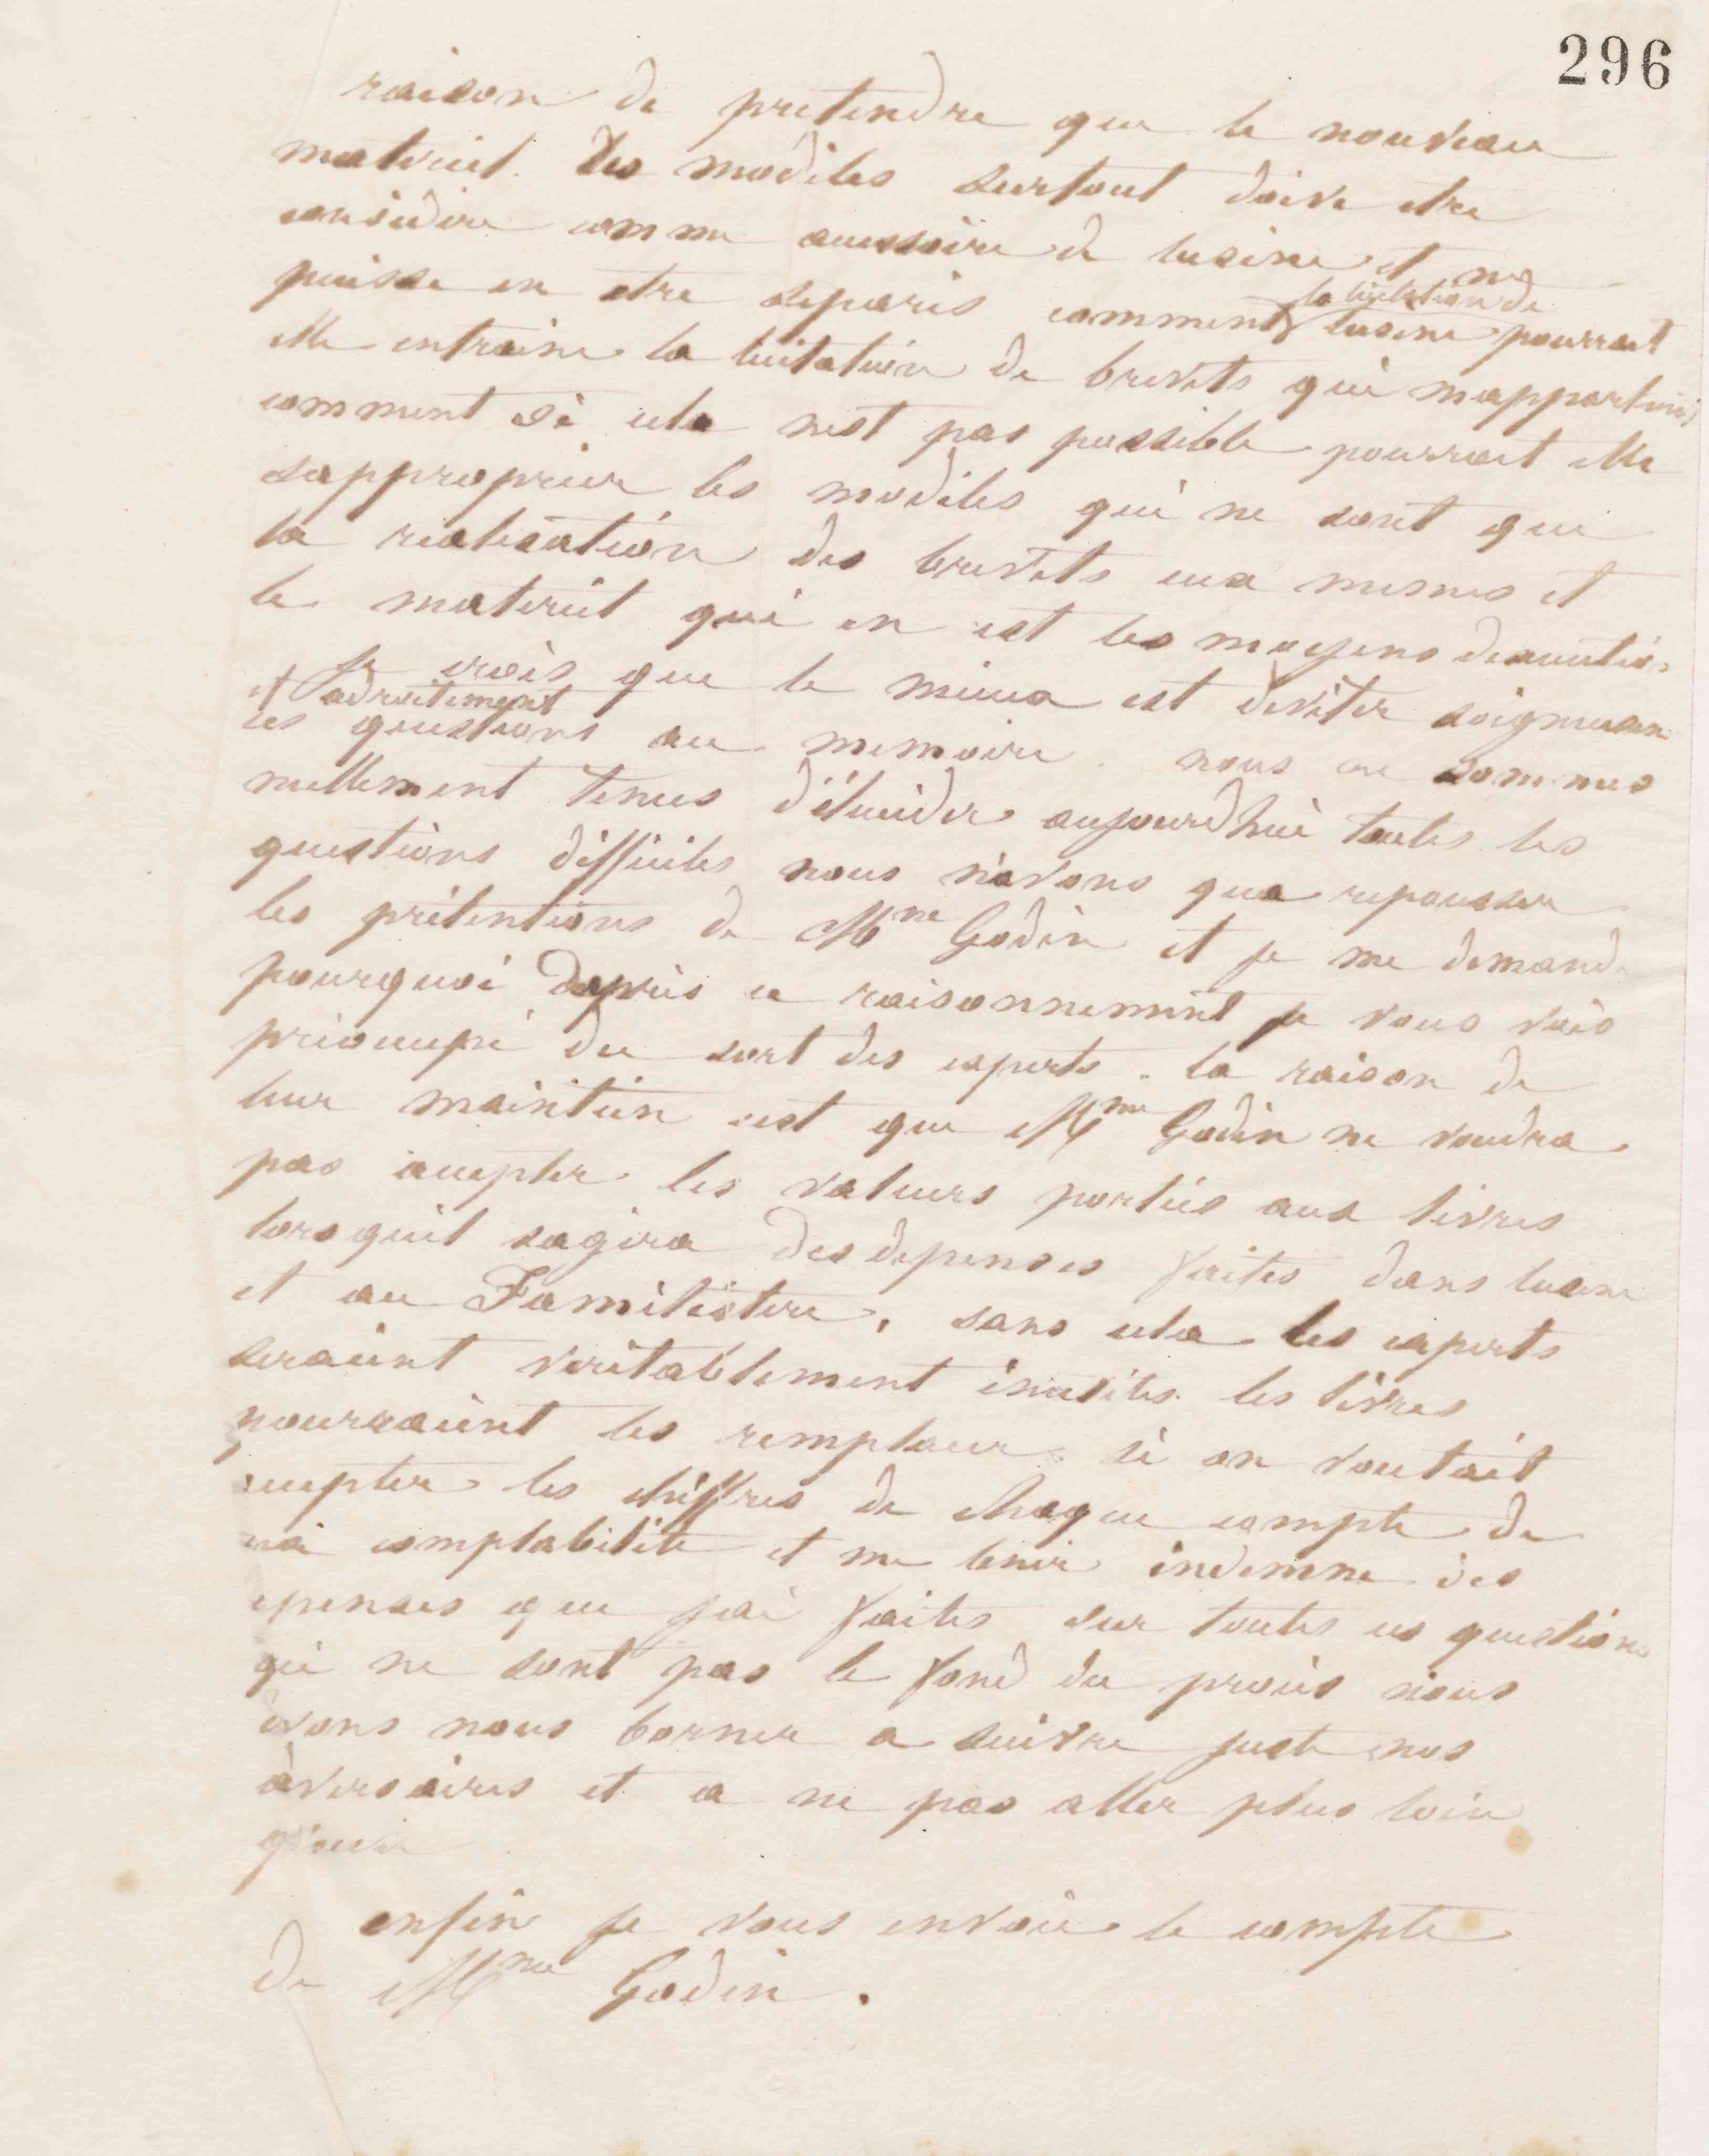 296
raison de pretendre que le nouveau
materiel. des modeles surtout doive etre
considere comme accessoire de lusine et ne
puisse en etre separés comment la licitation de lusine pourrait
elle entrainer la licitation de brevets qui mappartiennent
comment si cela nest pas possible pourrait elle
sapproprier les modeles qui ne sont que
la realisation des brevets eux memes et
le materiel qui en est les moyens dexecution
Je crois que le mieux est deviter soigneusement
et adroitement
ces questions au memoire. nous ne sommes
nullement tenus d'élucider aujourdhui toutes les
questions difficiles nous n'avons qua repousser
les prétentions de Mme Godin et je me demande
pourquoi Dapres ce raisonnement je vous vois
préoccupé du sort des experts. la raison de
leur maintien cest que Mme Godin ne voudra
pas accepter les valeurs portées aux livres
lorsquil sagira des depenses faites dans lusine
et au Familistere, sans cela les experts
seraient veritablement inutiles les livres
pourraient les remplacer si on voulait
accepter les chiffres de chaque compte de
ma comptabilité et me tenir indemne des
depenses que jai faites sur toutes ces questions
qui ne sont pas le fond du procès nous
devons nous borner a suivre juste nos
adversaires et a ne pas aller plus loin
qu'eux
enfin je vous envoie le compte
de Mme Godin.